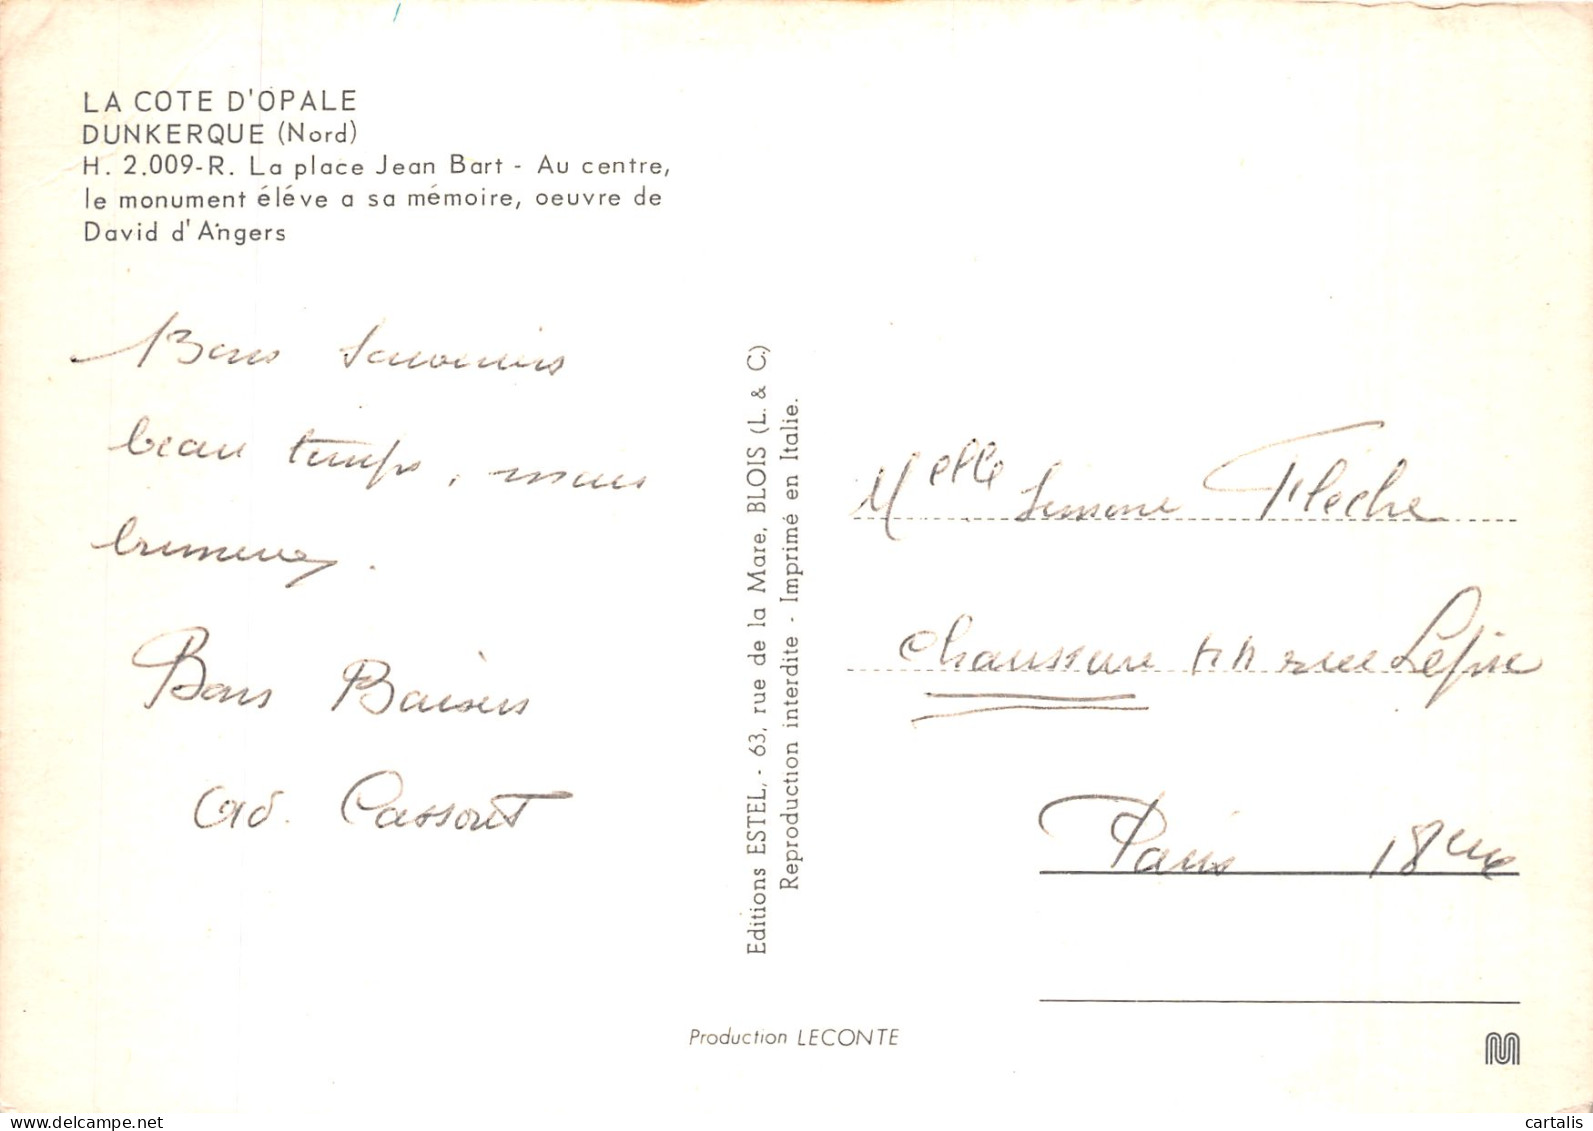 LA COTE D'OPALE
DUNKERQUE (Nord)
H. 2.009-R. La place Jean Bart - Au centre,
le monument éléve a sa mémoire, oeuvre de
David d'Angers
Bons Souvenirs
beau temps, mais
brumeux.
Bons Baisers
Ad. Cassout
Editions ESTEL, - 63, rue de la Mare, BLOIS (L. & C.)
Reproduction interdite - Imprimé en Italie.
Melle Simone Fleche
Chaussure rue Lepic
Paris 18eme
Production LECONTE
cartalis
delcampe.net